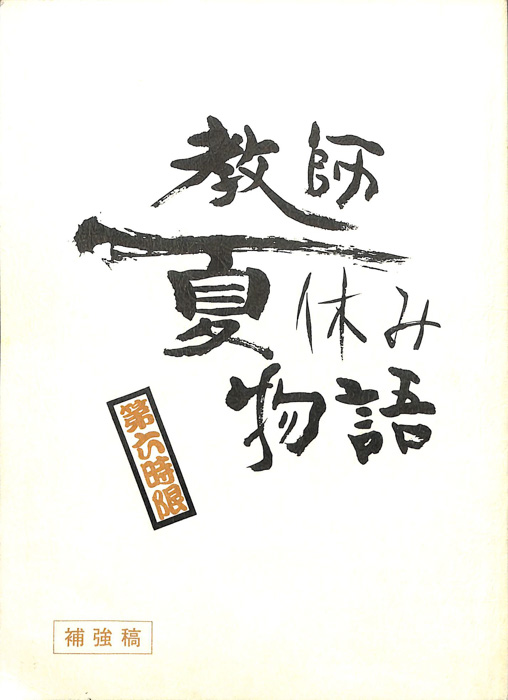 教師
夏休み
物語
第六時限
補強稿